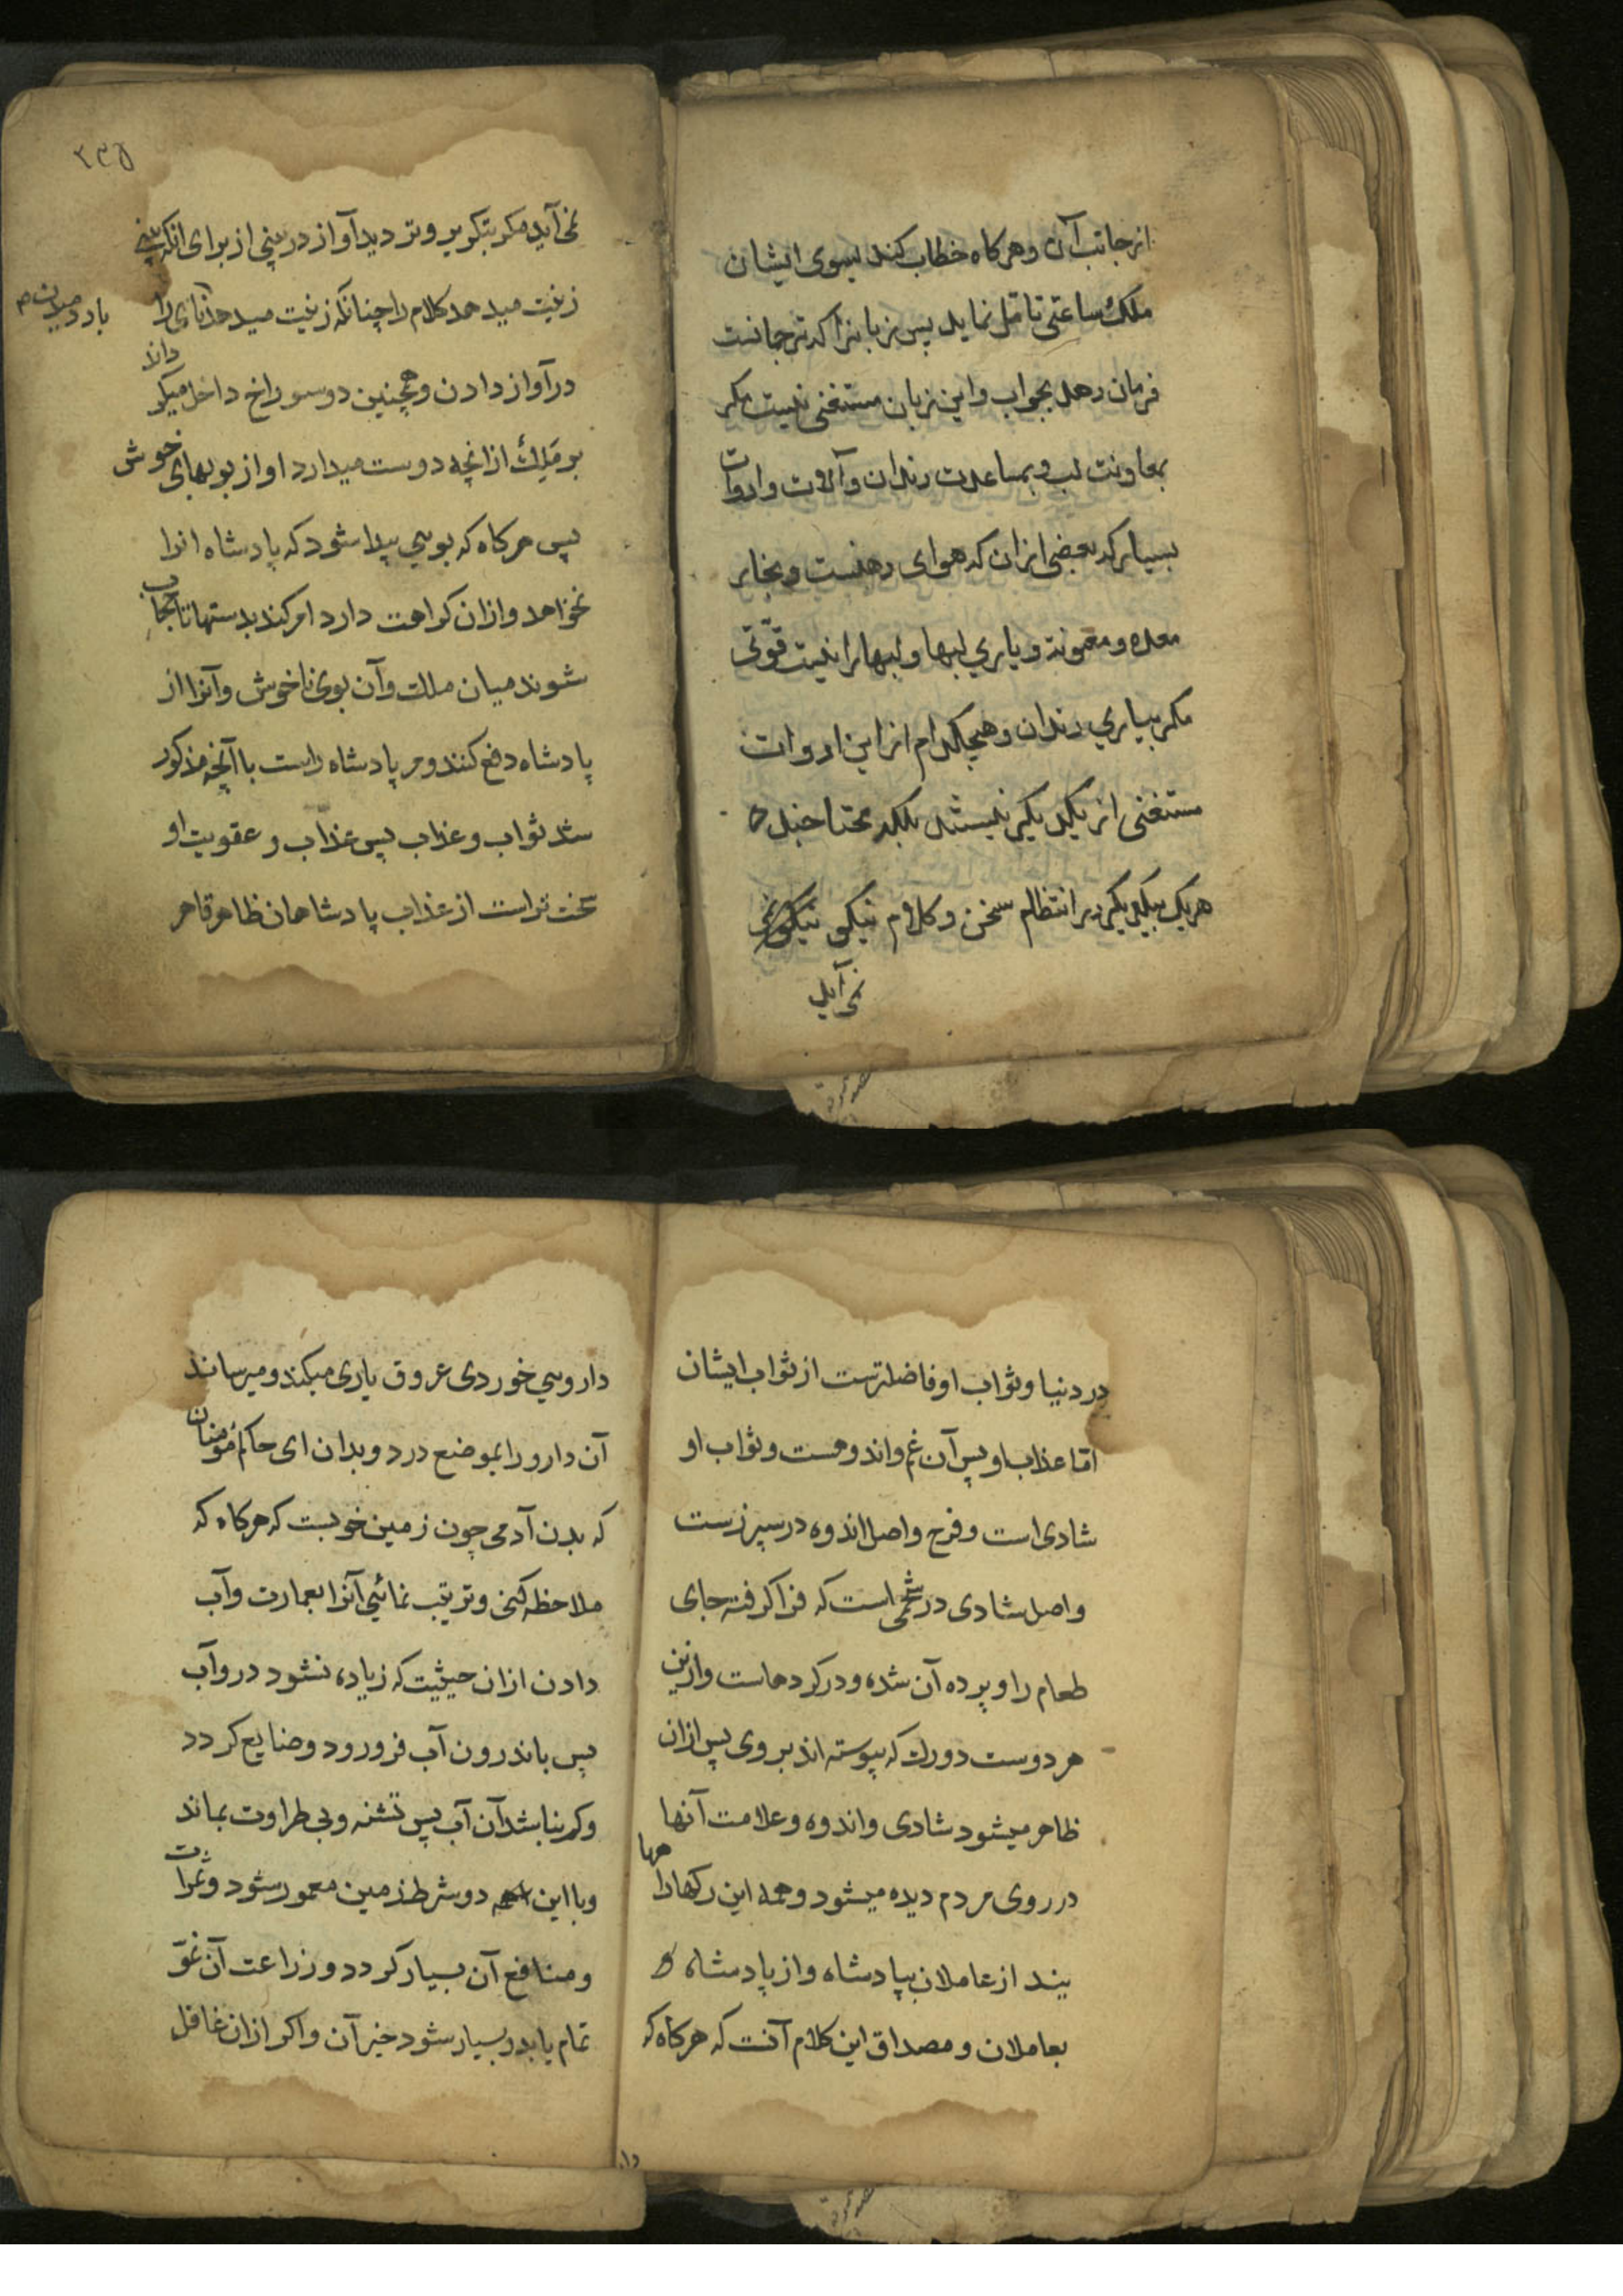 از جانب آن و هرکاه خطاب کند بسوی ایشان
ملک ساعتی تامل نماید پس زبانرا که ترجمانست
فرمان دهد بجواب و این زبان مستغنی نیست مکر
بمعاونت لب و بمساعدت دندان و آلات و ادوات
بسیار که بعضی ازان که هوای دهنست و بخار
معده و معونة و یاری لبها و لبها را نیست قوّتی
مکر بیاری دندان و هیچکدام از این ادوات
مستغنی از یکدیکر نیستند بلکه محتاجند
هریک بیکدیکر در انتظام سخن و کلام نیکو نیکو
نمی آید
۲۳۵
نمی آید مکر بتکویر و تردید آواز در بینی از برای انکه بینی
زینت میدهد کلام را چنانکه زینت میدهد نای را
باد دمیدن
در آواز دادن و همچنین دو سوراخ داخل میکردانند
بر ملِك ازانچه دوست میدارد او از بویهای خوش
پس هرکاه که بویی پیدا شود که پادشاه انرا
نخواهد و ازان کراهت دارد امر کند بدستها تا حجاب
شوند میان ملک و آن بوی ناخوش و آنرا از
پادشاه دفع کنند و مر پادشاه راست با آنچه مذکور
شد ثواب و عذاب پس عذاب و عقوبت او
سخت تر است از عذاب پادشاهان ظاهر قاهر
در دنیا و ثواب او فاضلترست از ثواب ایشان
امّا عذاب او پس آن غم و اندوهست و ثواب او
شادی است و فرح و اصل اندوه در سپرزست
و اصل شادی در شحمی است که فرا کرفته جای
طعام را و پرده آن شده و در کردهاست و ازین
هر دوست دو رک که پیوسته اند بروی پس ازان
ظاهر میشود شادی و اندوه و علامت آنها
در روی مردم دیده میشود و همه این رکها راهها
یند از عاملان بپادشاه و از پادشاه
بعاملان و مصداق این کلام آنست که هرکاه که
دا
دارویی خوردی عروق یاری میکند و میرساند
آن دارو را بموضع درد و بدان ای حاکم مؤمنان
که بدن آدمی چون زمین خوبست که هرکاه که
ملاحظه کنی و ترتیب نمائی آنرا بعمارت و آب
دادن ازان حیثیت که زیاده نشود درو آب
پس باندرون آب فرو رود و ضایع کردد
و کم نباشد آن آب پس تشنه و بی طراوت بماند
و با این دو شرط زمین معمور شود و ثمرات
و منافع آن بسیار کردد و زراعت آن نموّ
تمام یابد و بسیار شود خیر آن و اکر ازان غافل